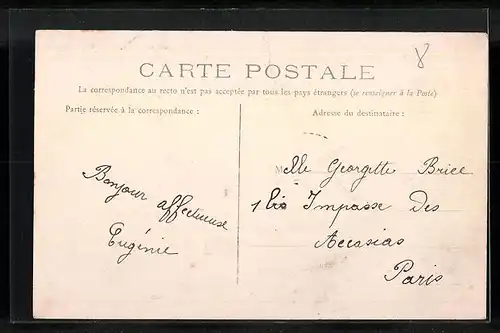 8
CARTE POSTALE
La correspondance au recto n'est pas acceptée par tous les pays étrangers (se renseigner à la Poste)
Partie réservée à la correspondance :
Adresse du destinataire :
Bonjour affectueuse
Eugénie
Melle Georgette Brice
1 bis Impasse Des
Accasias
Paris